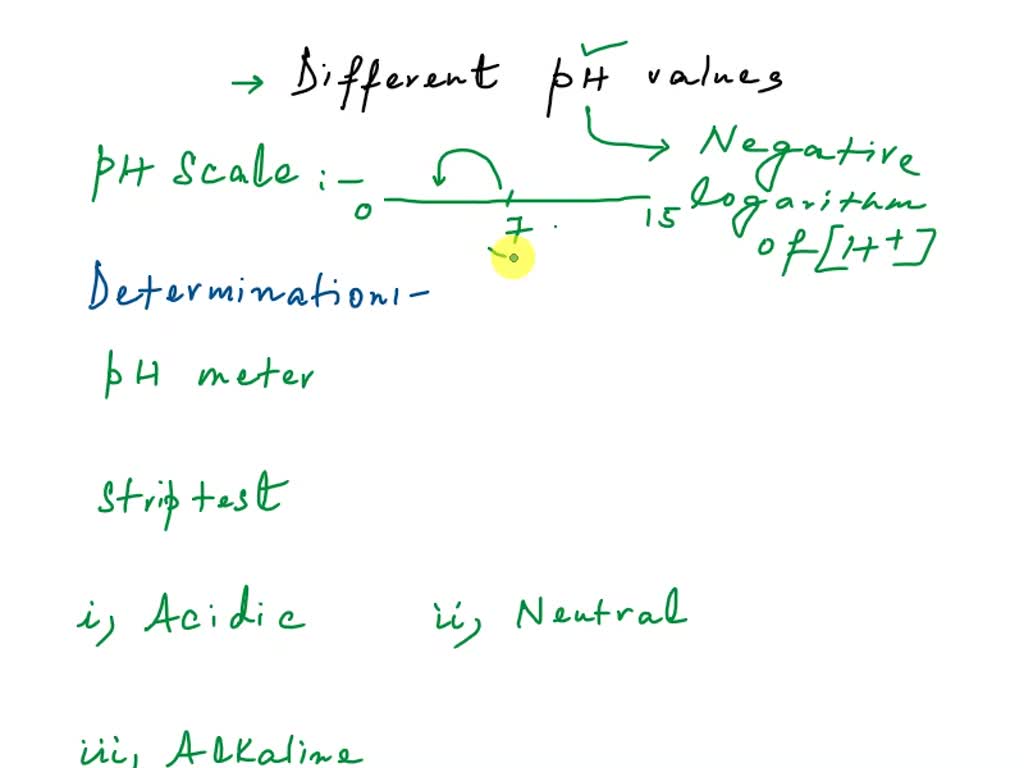 → Different pH values
pH Scale :-
0 7 15
Negative
logarithm
of [H+]
Determination:-
pH meter
Strip test
i, Acidic
ii, Neutral
iii, Alkaline